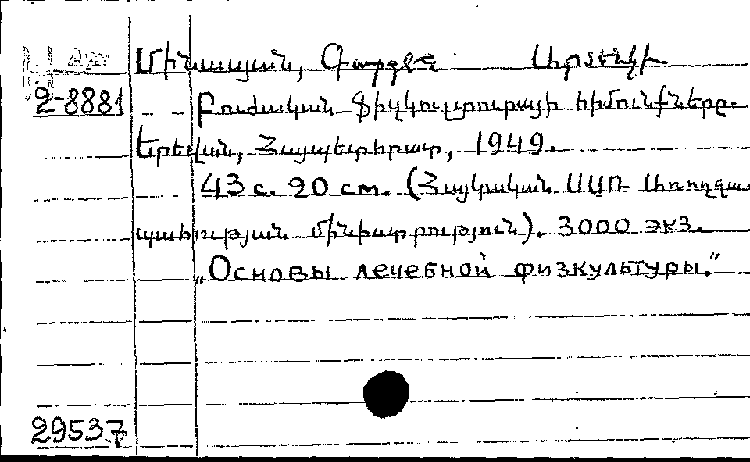 Մինասյան, Գարգեն Արտեմի
2-8881
Բուժական ֆիզկուլտուրայի հիմունքները.
Երեվան, Հայպետհրատ, 1949.
43 с. 20 cm. (Հայկական ՍՍՌ Առողջա
պահության մինիստրություն). 3000 экз.
„Основы лечебной физкультуры.”
29537